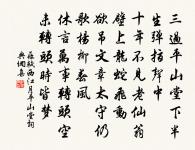 三過平山堂下半
生彈指聲中
十年不見老仙翁
壁上龍蛇飛動
欲吊文章太守仍
歌楊柳春風
休言萬事轉頭空
未轉頭時皆夢
蘇軾西江月平山堂詞